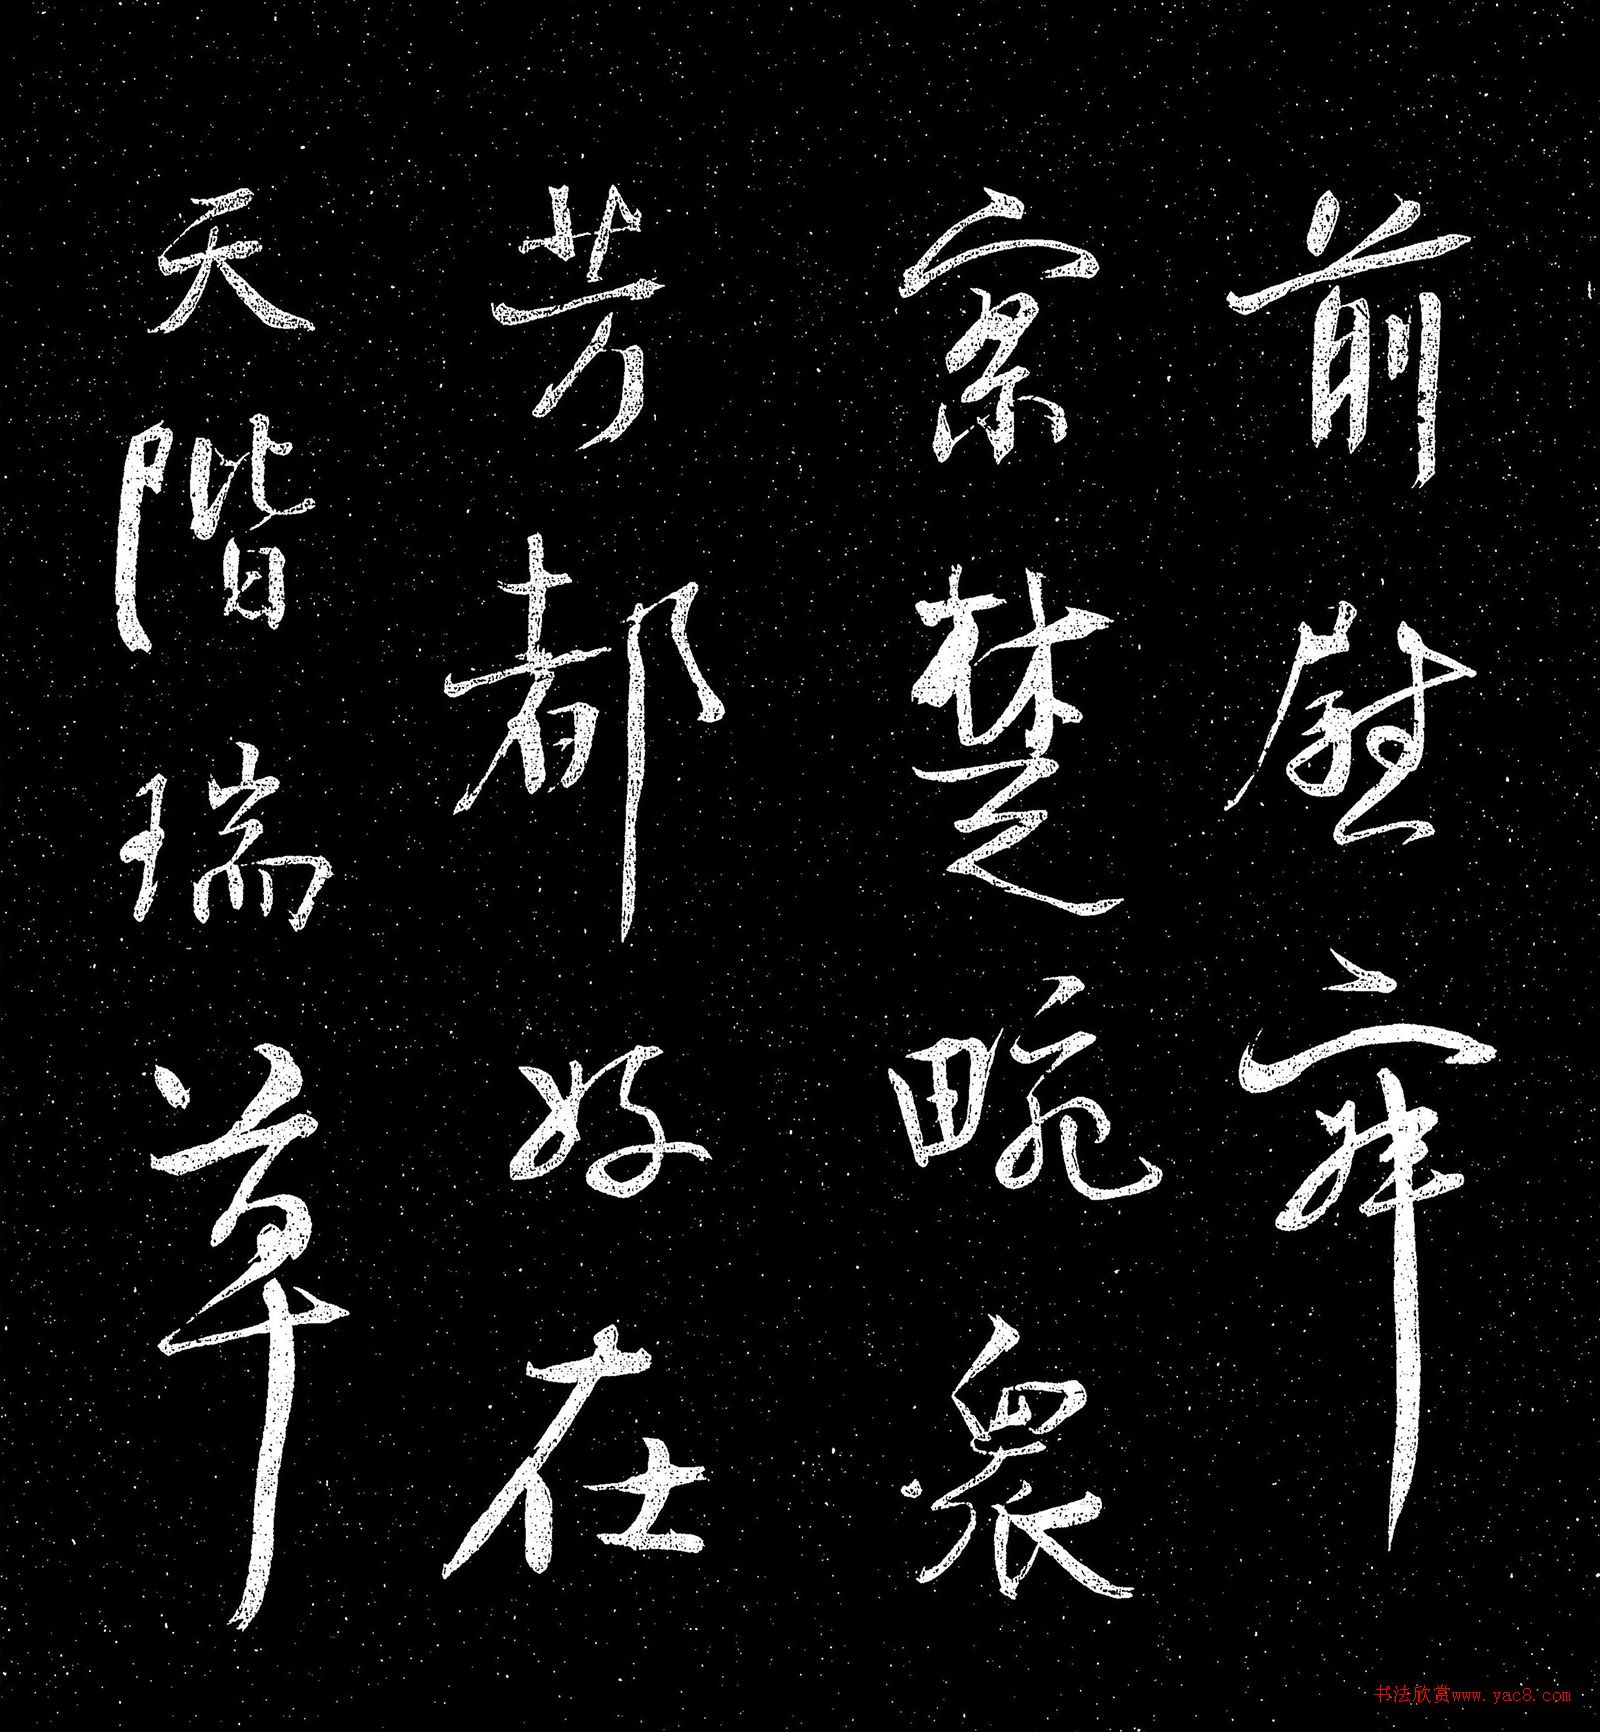 前慰寂
寥楚畹衆
芳都好在
天階瑞草
书法欣赏www.yac8.com